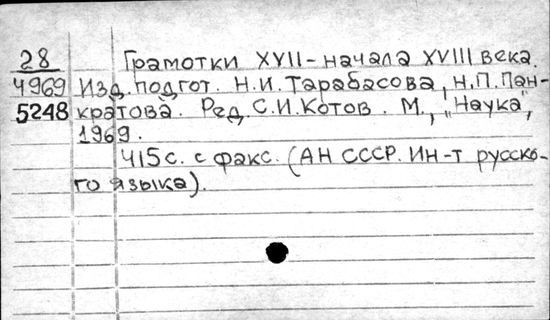 28 Грамотки XVII-начала XVIII века.
4969 Изд. подгот. Н.И. Тарабасова, Н.П. Пан-
5248 кратова. Ред. С.И. Котов. М., "Наука",
1969.
415с. с факс. (АН СССР. Ин-т русско-
го языка).